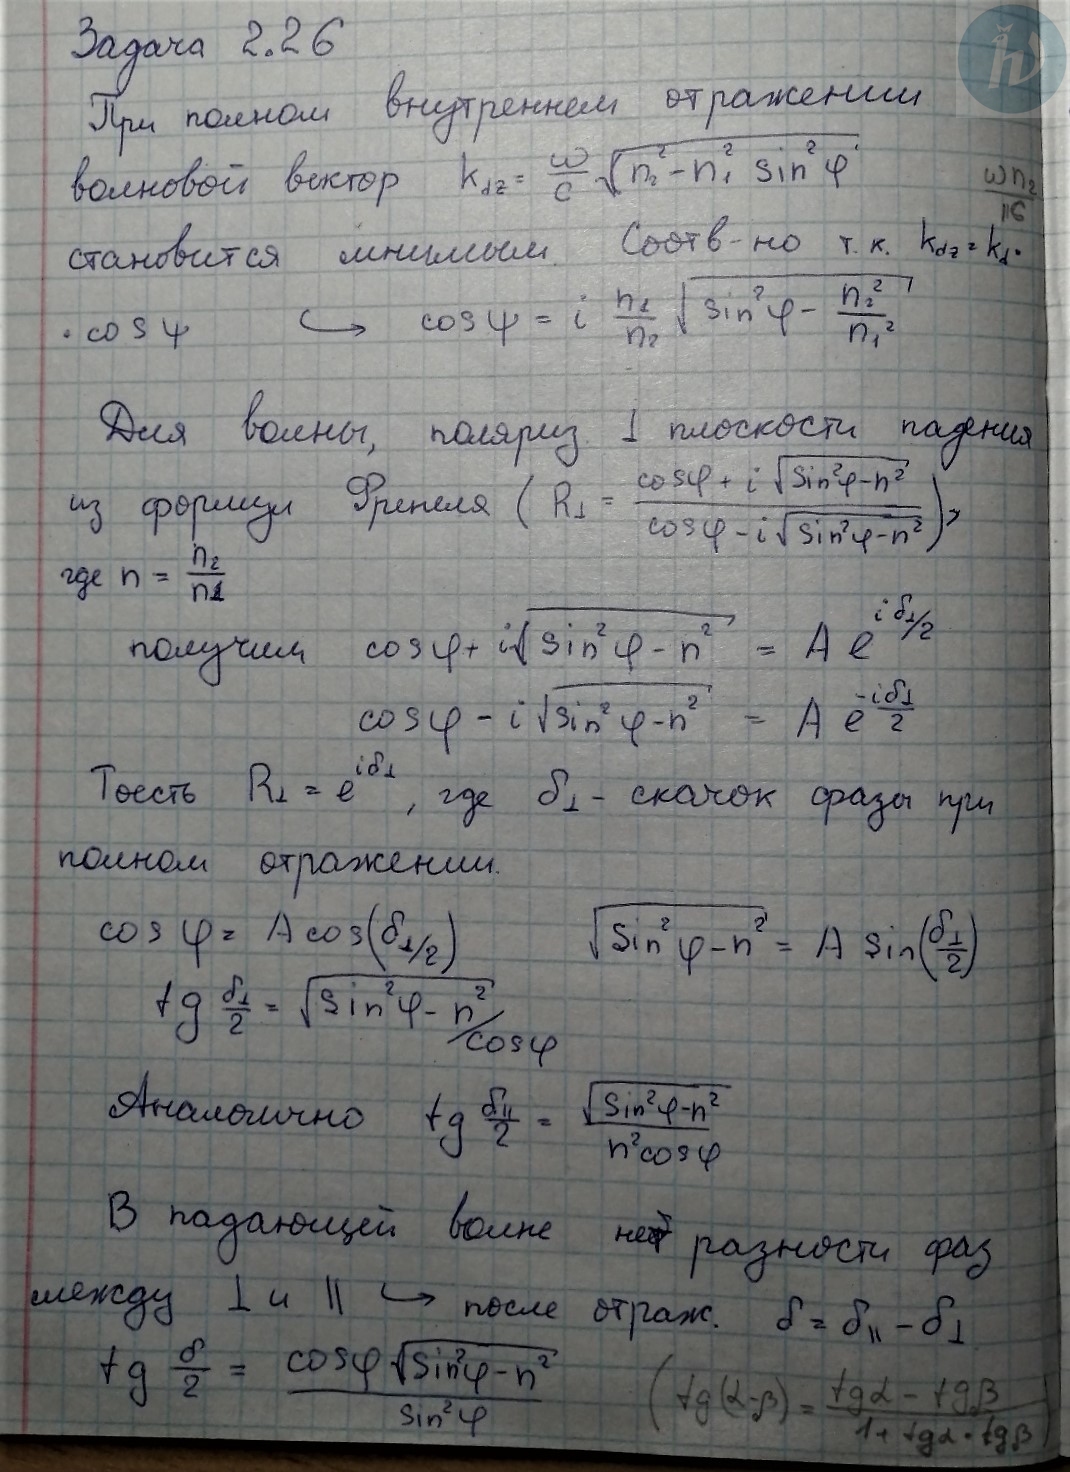 Задача 2.26
При полном внутреннем отражении
волновой вектор k_dz = ω/c √(n₂² - n₁² sin²φ) ωn₂/
становится мнимым. Соотв-но т.к. k_dz = k_d ·
· cosψ ↪ cosψ = i n₁/n₂ √(sin²φ - n₂²/n₁²)
Для волны, поляриз. ⊥ плоскости падения
из формул Френеля (R⊥ = (cosφ + i√(sin²φ-n²))/(cosφ - i√(sin²φ-n²))),
где n = n₂/n₁
получим cosφ + i√(sin²φ - n²) = A e^(iδ⊥/2)
cosφ - i√(sin²φ-n²) = A e^(-iδ⊥/2)
Тоесть R⊥ = e^(iδ⊥), где δ⊥ - скачок фазы при
полном отражении.
cosφ = A cos(δ⊥/2) √(sin²φ-n²) = A sin(δ⊥/2)
tg δ⊥/2 = √(sin²φ-n²)/cosφ
Аналогично tg δ||/2 = √(sin²φ-n²)/(n²cosφ)
В падающей волне нет разности фаз
между ⊥ и || ↪ после отраж. δ = δ|| - δ⊥
tg δ/2 = cosφ √(sin²φ-n²)/sin²φ (tg(α-β) = (tgα - tgβ)/(1 + tgα·tgβ))